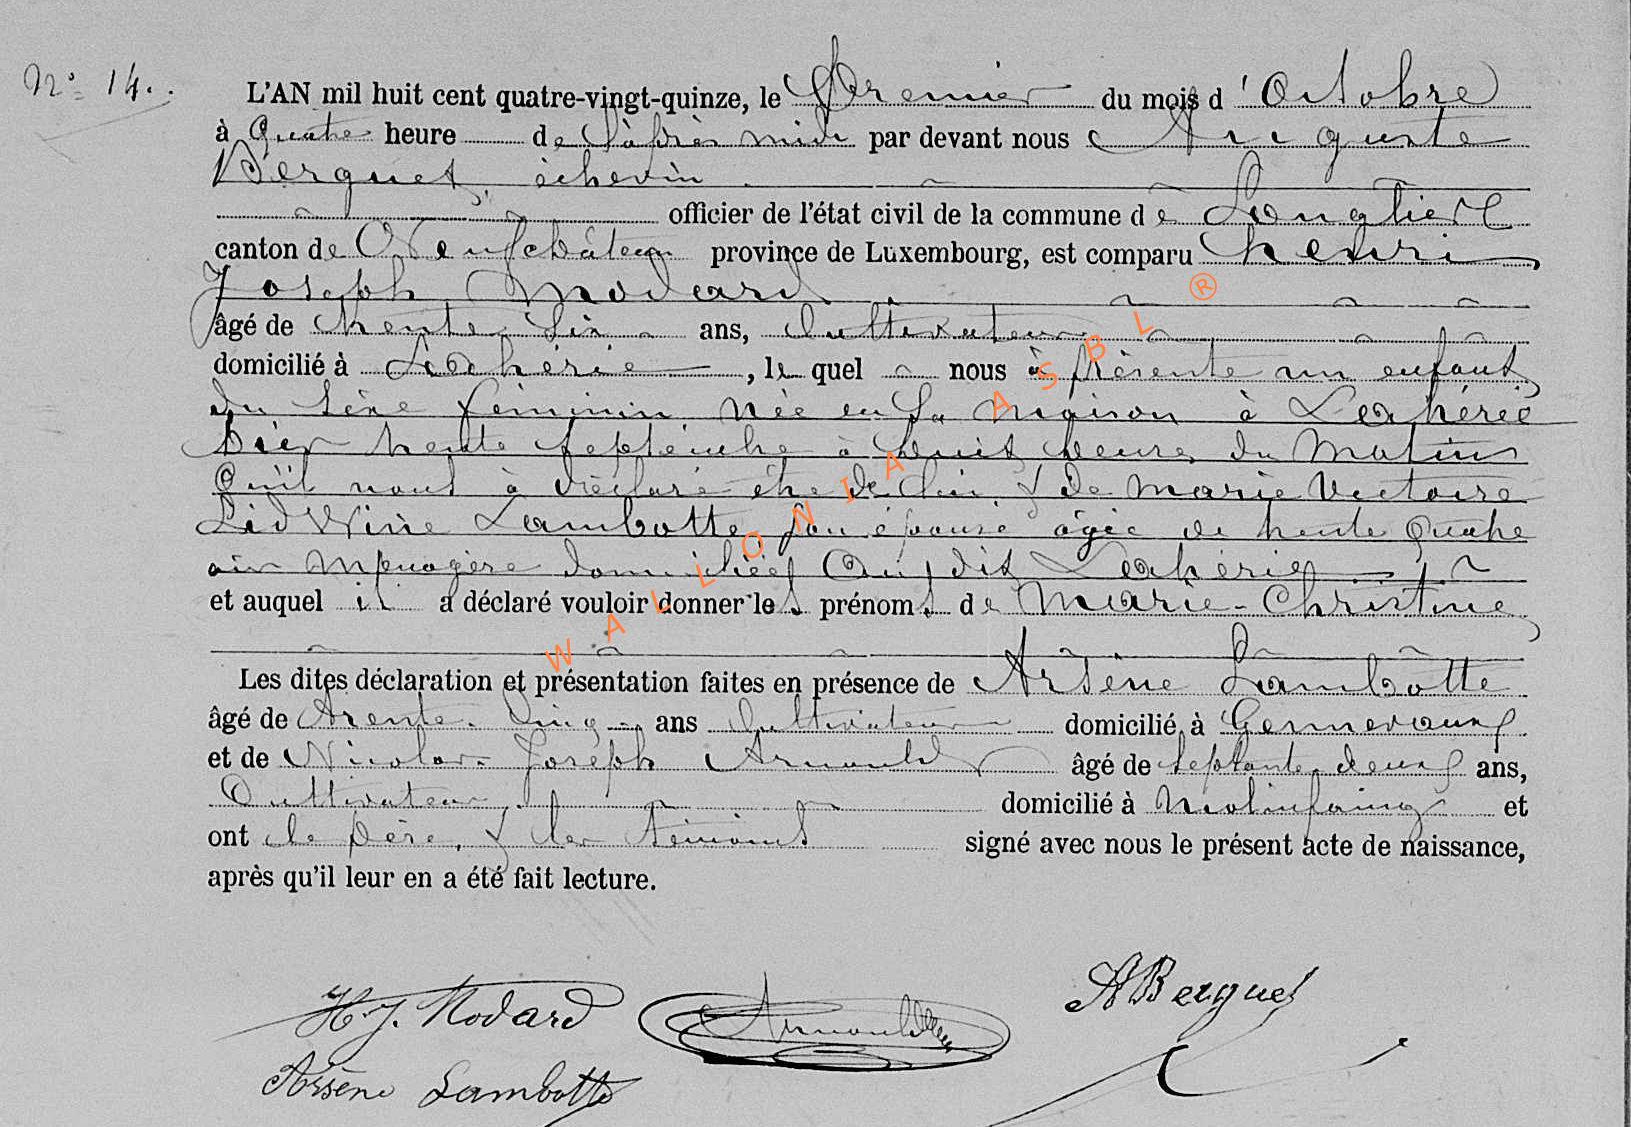 N° 14.
L'AN mil huit cent quatre-vingt-quinze, le Premier du mois d'Octobre
à Quatre heure de l'après midi par devant nous Auguste
Berquet, échevin
officier de l'état civil de la commune de Longlier
canton de Neufchâteau province de Luxembourg, est comparu henri
Joseph Modard
âgé de trente Six ans, Cultivateur
domicilié à Lahérie, le quel nous à Présenté un enfant
du Sèxe féminin née en Sa maison à Lahérie
hier trente Septembre à huit heures du Matin
Qu'il nous à déclaré être de lui & de Marie Victoire
Lidwine Lambotte, son épouse âgée de trente Quatre
ans Menagère domiciliées Au dit Lahérie
et auquel il a déclaré vouloir donner les prénoms de Marie-Christine
Les dites déclaration et présentation faites en présence de Arsène Lambotte
âgé de trente Cinq ans Cultivateur domicilié à Gennevaux
et de Nicolas Joseph Arnould âgé de Septante deux ans,
Cultivateur domicilié à Molinfaing et
ont le père, & les témoins signé avec nous le présent acte de naissance,
après qu'il leur en a été fait lecture.
H. J. Modard Arnould ABerquet
Arsène Lambotte
WALLONIA ASBL ®